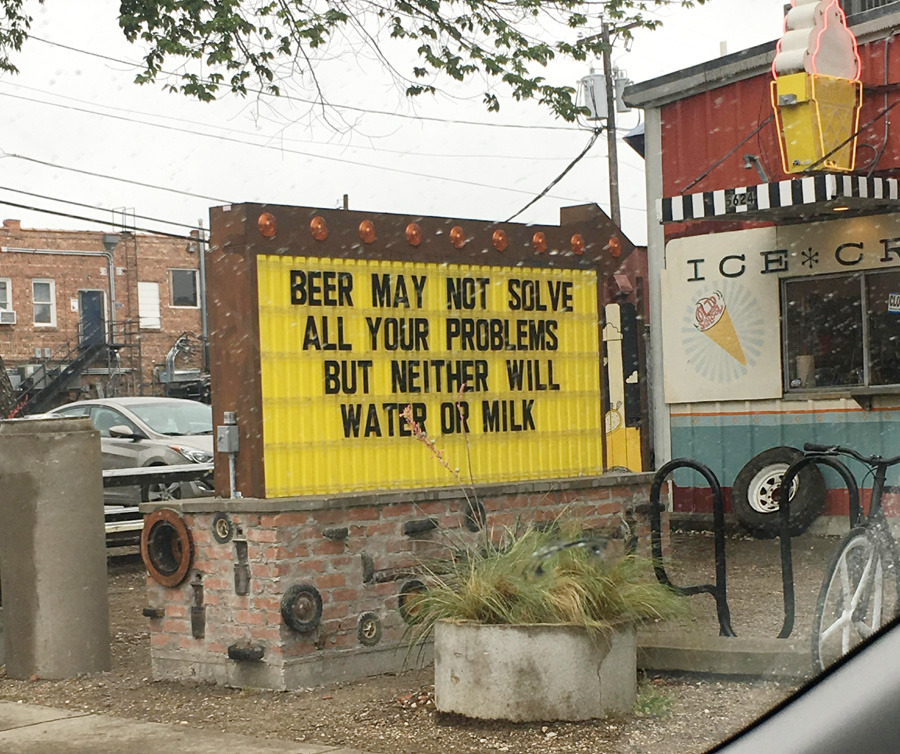 BEER MAY NOT SOLVE
ALL YOUR PROBLEMS
BUT NEITHER WILL
WATER OR MILK
5624
ICE*CR